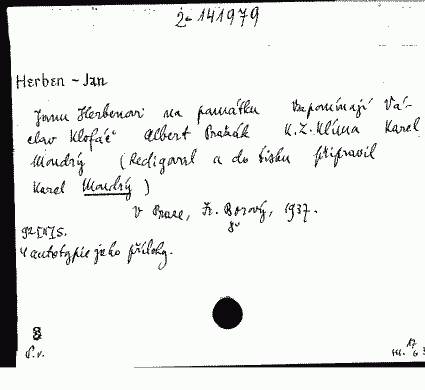 2-141979
Herben - Jan
Janu Herbenovi na památku Vzpomínají Vá-
clav Klofáč Albert Pražák K. Z. Klíma Karel
Moudrý (Redigoval a do tisku připravil
Karel Moudrý)
V Praze, Fr. Borový, 1937.
8°
92 [4] s.
4 autotypie jako přílohy.